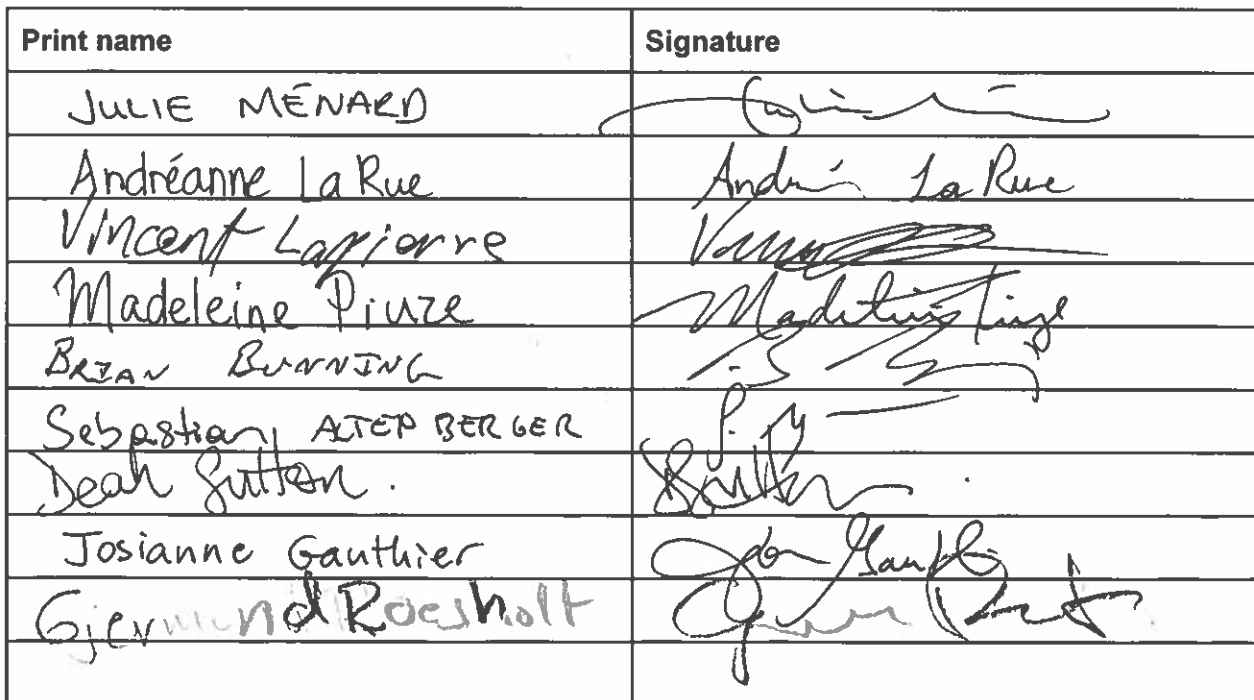 Print name Signature
JULIE MÉNARD
Andréanne LaRue Andréa La Rue
Vincent Lapierre
Madeleine Piuze Madeleine Piuze
BRIAN BUNNING
Sebastian ALTEP BERGER
Dean Sutton. DSutton
Josianne Gauthier
Gjermund Roesholt